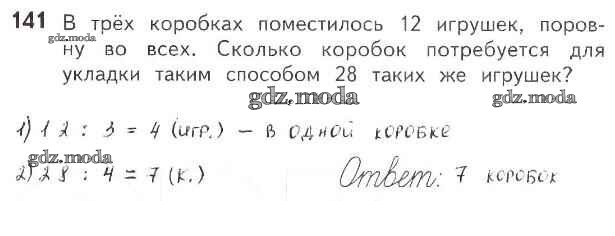 141 В трёх коробках поместилось 12 игрушек, поров-
gdz.moda
ну во всех. Сколько коробок потребуется для
укладки таким способом 28 таких же игрушек?
gdz.moda gdz.moda
1) 12 : 3 = 4 (игр.) – в одной коробке
gdz.moda
2) 28 : 4 = 7 (к.) Ответ: 7 коробок